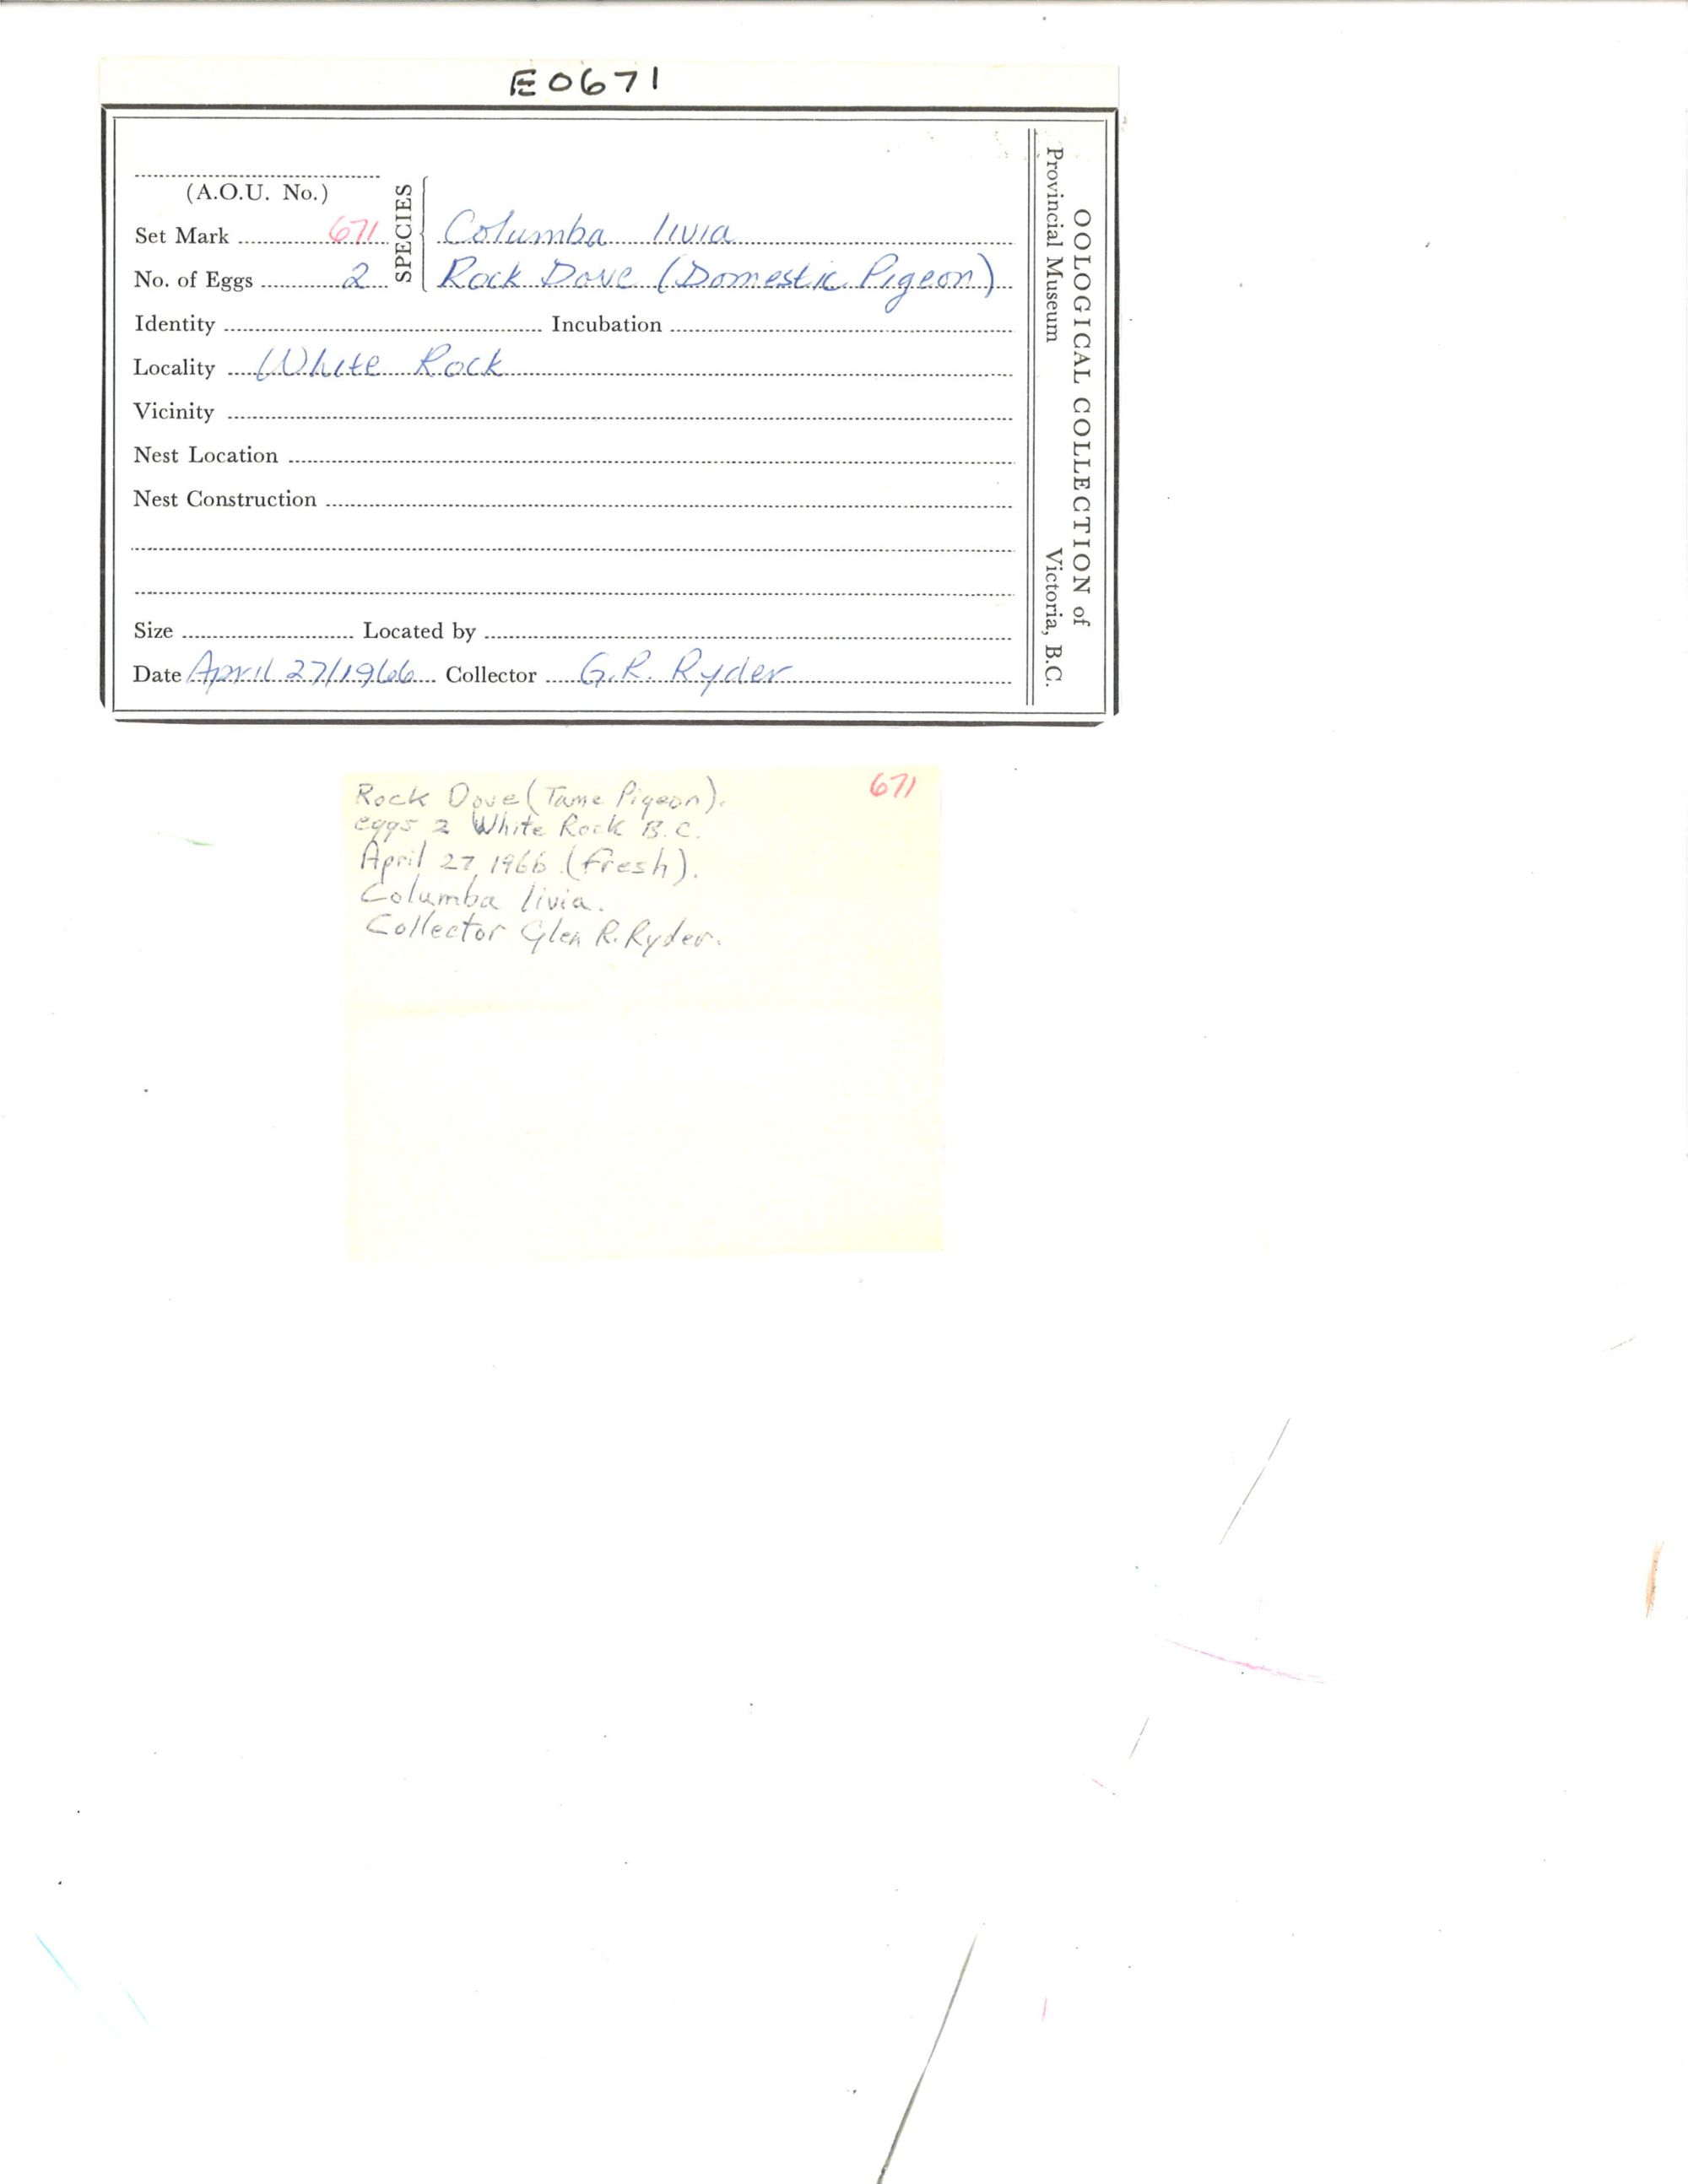 E0671
(A.O.U. No.)
Set Mark 671
No. of Eggs 2
SPECIES
Columba livia
Rock Dove (Domestic Pigeon)
Identity Incubation
Locality White Rock
Vicinity
Nest Location
Nest Construction
Size Located by
Date April 27/1966 Collector G.R. Ryder
OOLOGICAL COLLECTION of
Provincial Museum Victoria, B.C.
671
Rock Dove (Tame Pigeon).
eggs 2 White Rock B.C.
April 27, 1966 (fresh).
Columba livia.
Collector Glen R. Ryder.